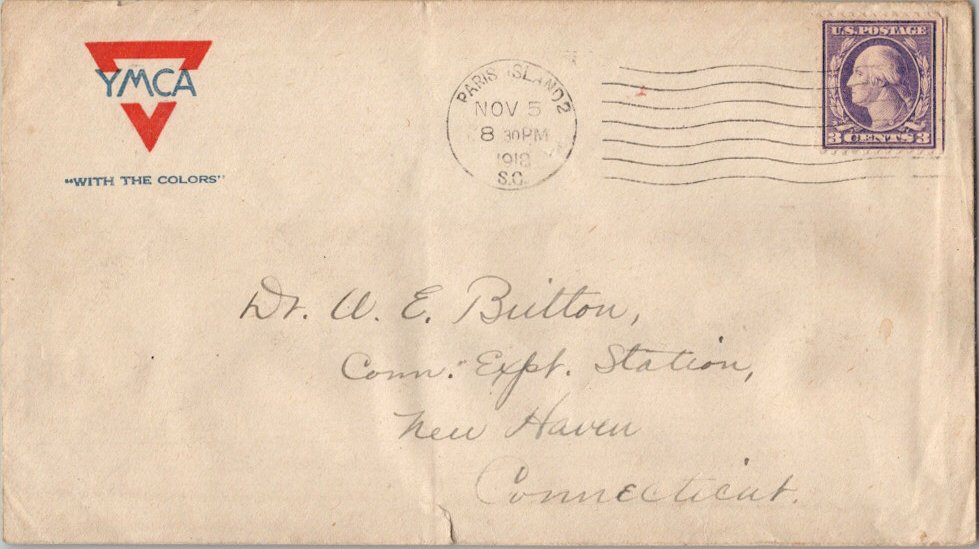 YMCA
"WITH THE COLORS"
PARIS ISLAND
NOV 5
8 30 PM
1918
S.C.
U.S. POSTAGE
3 CENTS 3
Dr. W. E. Britton,
Conn. Expt. Station,
New Haven
Connecticut.